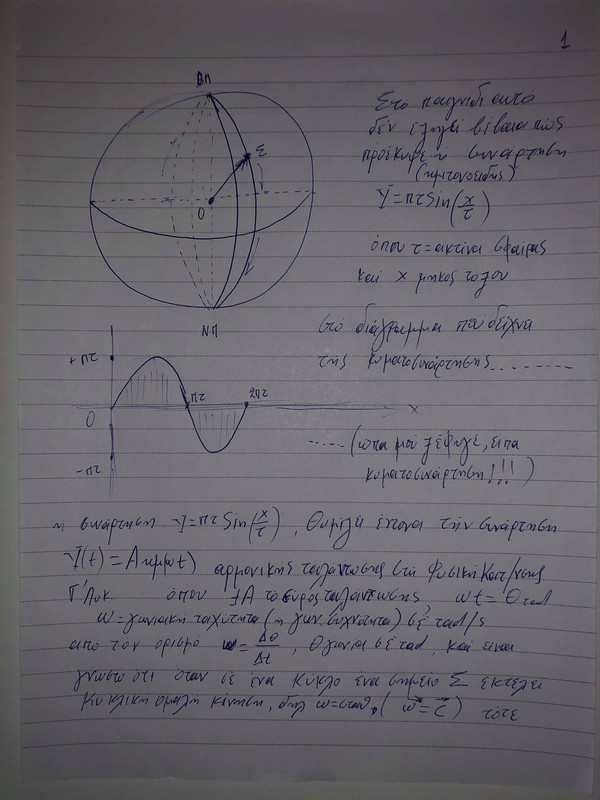 1
ΒΠ
Στο παιχνίδι αυτό
δέν εξηγεί βέβαια πώς
προέκυψε η συνάρτηση
(ημιτονοειδής)
Σ
Ψ=πτ Sin(x/τ)
Ο
όπου τ=ακτίνα σφαίρας
και x μήκος τόξου
ΝΠ
στο διάγραμμα που δείχνει
της κυματοσυνάρτησης.........
+πτ
πτ
2πτ
Ο
x
-πτ
..... (ώπα μου ξέφυγε, είπα
κυματοσυνάρτηση!!!)
η συνάρτηση Ψ=πτ Sin(x/τ), Θυμίζει έντονα την συνάρτηση
Ψ(t)=Αημ(ωt) αρμονικής ταλάντωσης στη Φυσική Κατ/νσης
Γ' Λυκ όπου Α το εύρος ταλαντωσης ωt=Θrad
ω=γωνιακή ταχύτητα (η γων. συχνότητα) σέ rad/s
απο τον ορισμό ω=Δθ/Δt, Θ γωνια σέ rad, και είναι
γνωστό ότι όταν σε ένα κύκλο ένα σημείο Σ εκτελεί
κυκλική ομαλή κίνηση, δηλ ω=σταθ. (ω⃗=c⃗) τότε